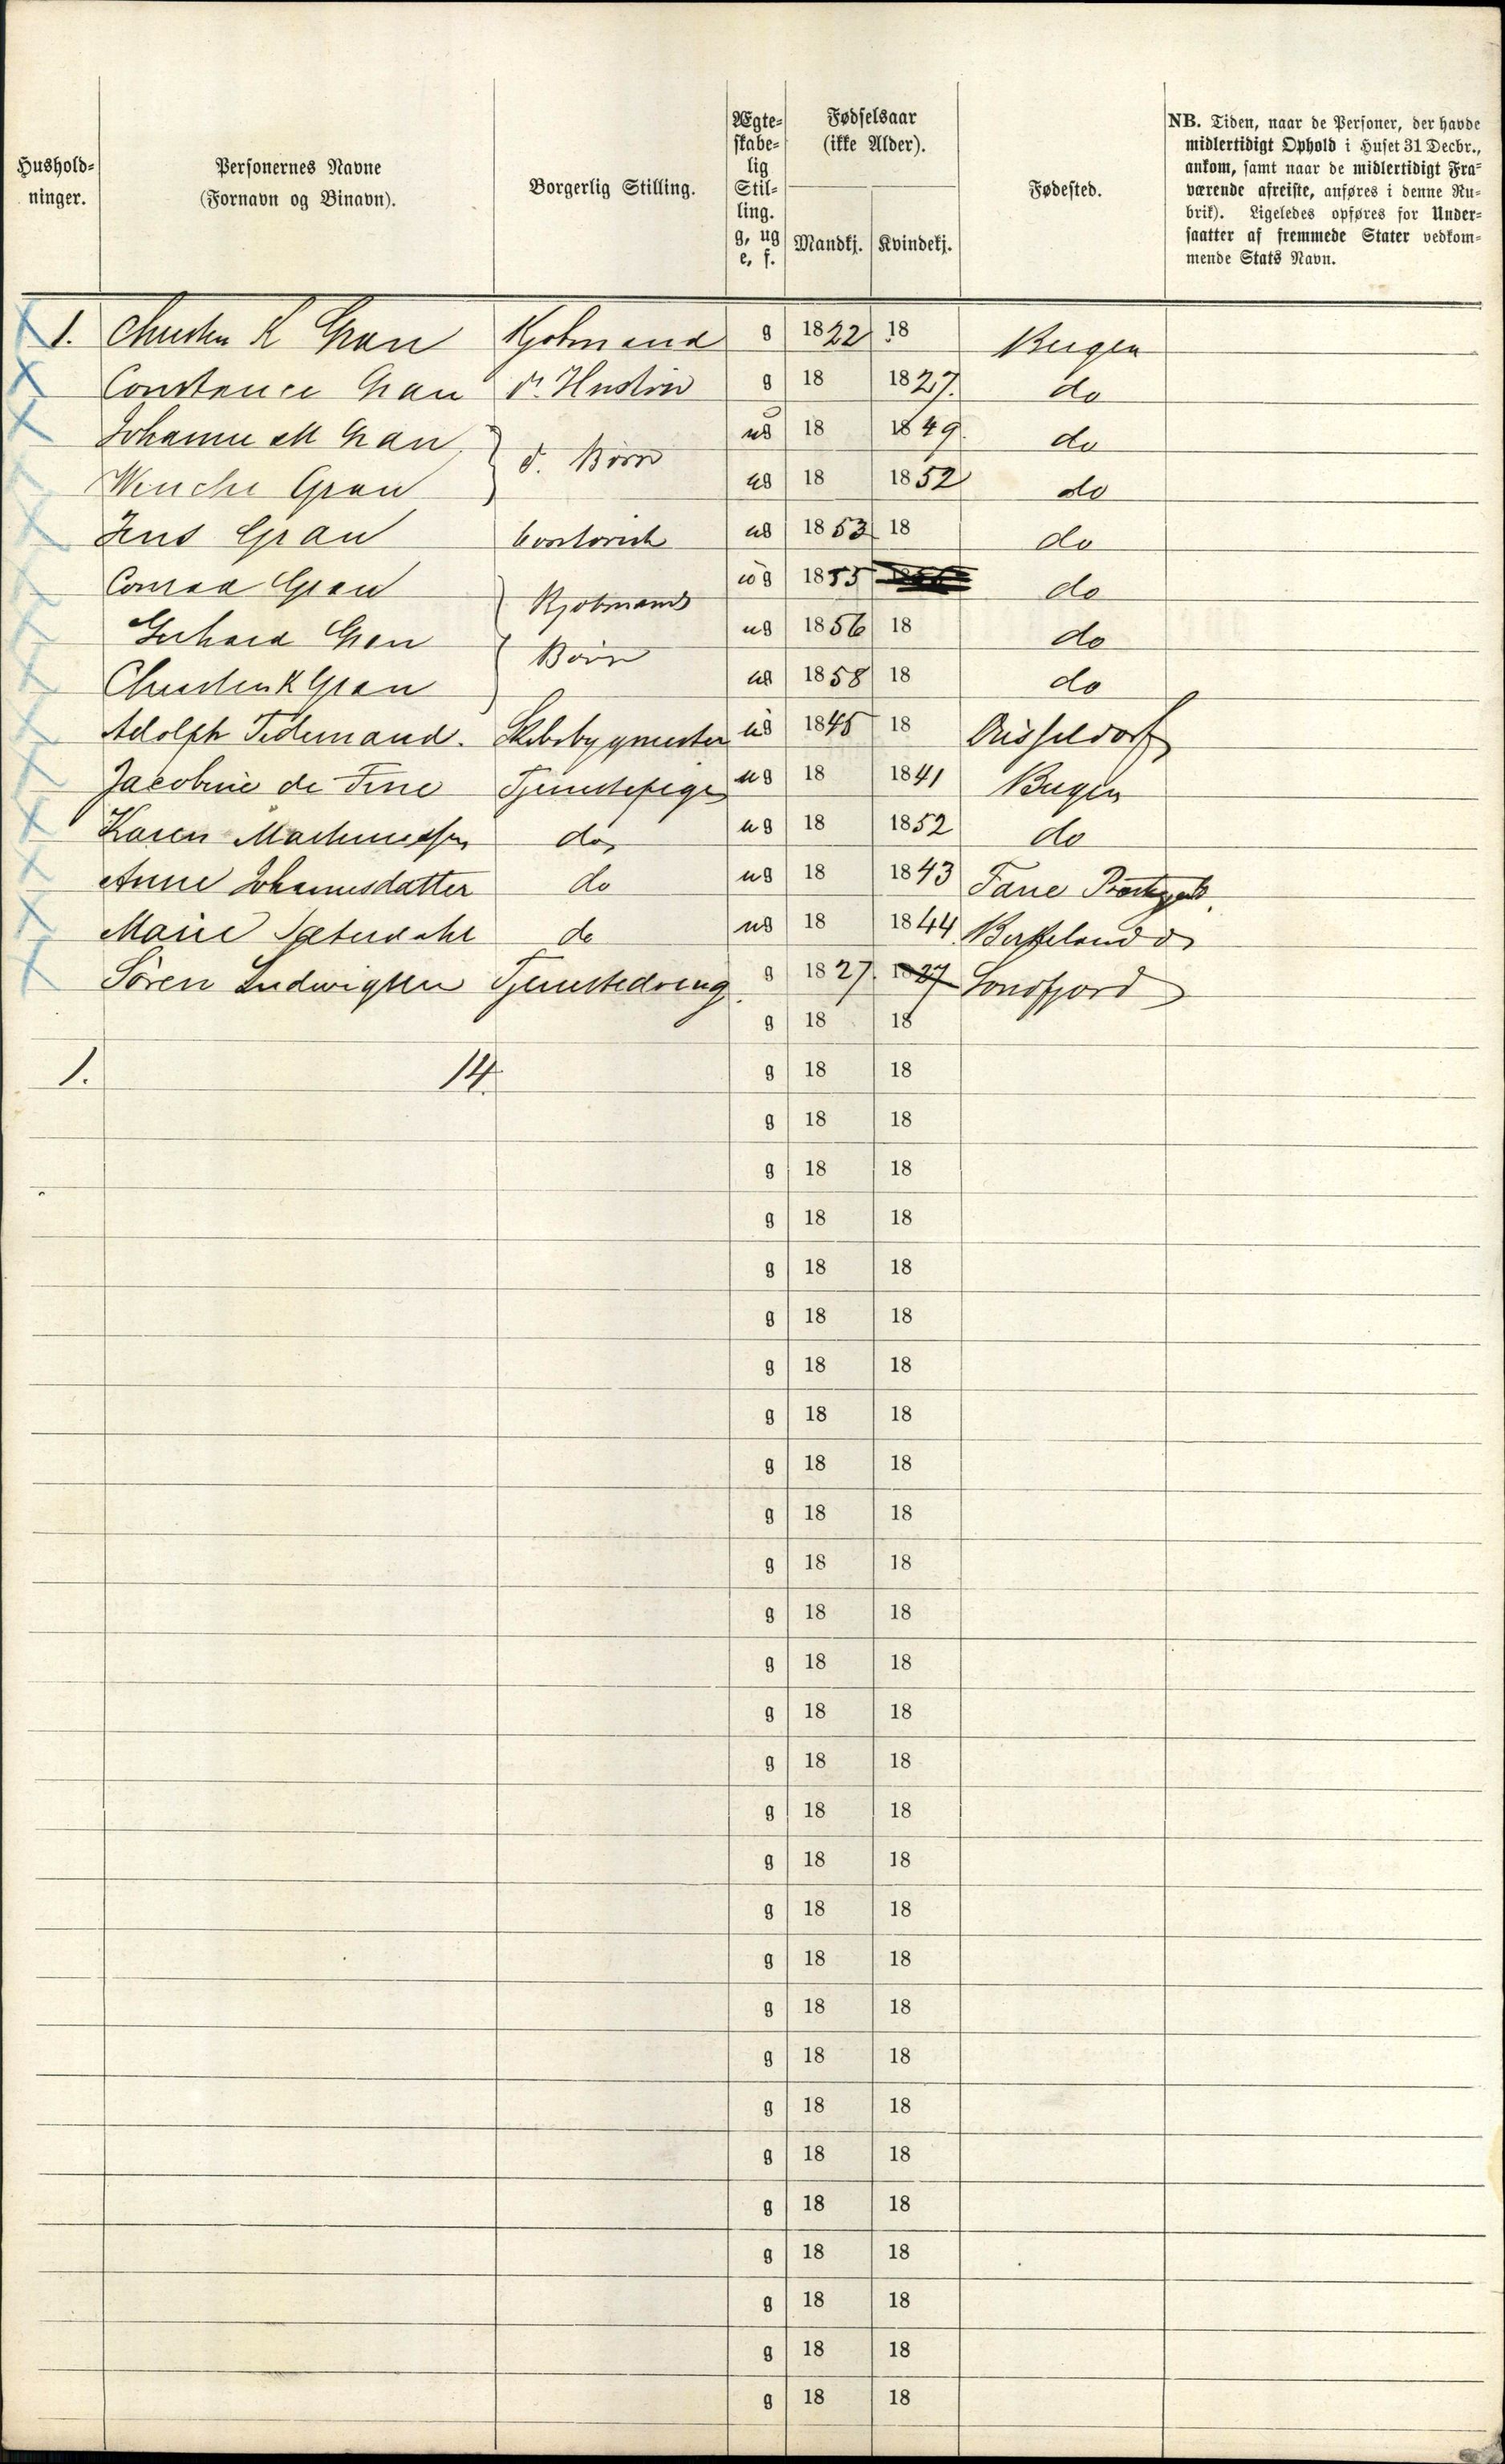 Hushold-
ninger.
Personernes Navne
(Fornavn og Binavn).
Borgerlig Stilling.
Ægte-
skabe-
lig
Stil-
ling.
g, ug
e, f.
Fødselsaar
(ikke Alder).
Mandkj. Kvindekj.
Fødested.
NB. Tiden, naar de Personer, der havde
midlertidigt Ophold i Huset 31 Decbr.,
ankom, samt naar de midlertidigt Fra-
værende afreiste, anføres i denne Ru-
brik). Ligeledes opføres for Under-
saatter af fremmede Stater vedkom-
mende Stats Navn.
1. Christen K Gran Kjøbmand g 1822 18 Bergen
Constance Gran d. Hustru g 18 1827. do
Johanne M Gran ug 18 1849. do
d. Børn
Wenche Gran ug 18 1852 do
Jens Gran Contorist ug 1853 18 do
Conrad Gran ug 1855 do
Kjøbmands
Gerhard Gran ug 1856 18 do
Børn
Christen K Gran ug 1858 18 do
Adolph Tidemand. Skibsbygmester ug 1845 18 Düsseldorf
Jacobine de Fine Tjenestepige ug 18 1841 Bergen
Karen do ug 18 1852 do
Anne Johannesdatter do ug 18 1843 Fane Præstegjeld.
Marie Sæterdahl do ug 18 1844 Birkeland do
Sören Ludwigsen Tjenestedreng. g 1827. 1827 Sondfjord
g 18 18
1. 14. g 18 18
g 18 18
g 18 18
g 18 18
g 18 18
g 18 18
g 18 18
g 18 18
g 18 18
g 18 18
g 18 18
g 18 18
g 18 18
g 18 18
g 18 18
g 18 18
g 18 18
g 18 18
g 18 18
g 18 18
g 18 18
g 18 18
g 18 18
g 18 18
g 18 18
g 18 18
g 18 18
g 18 18